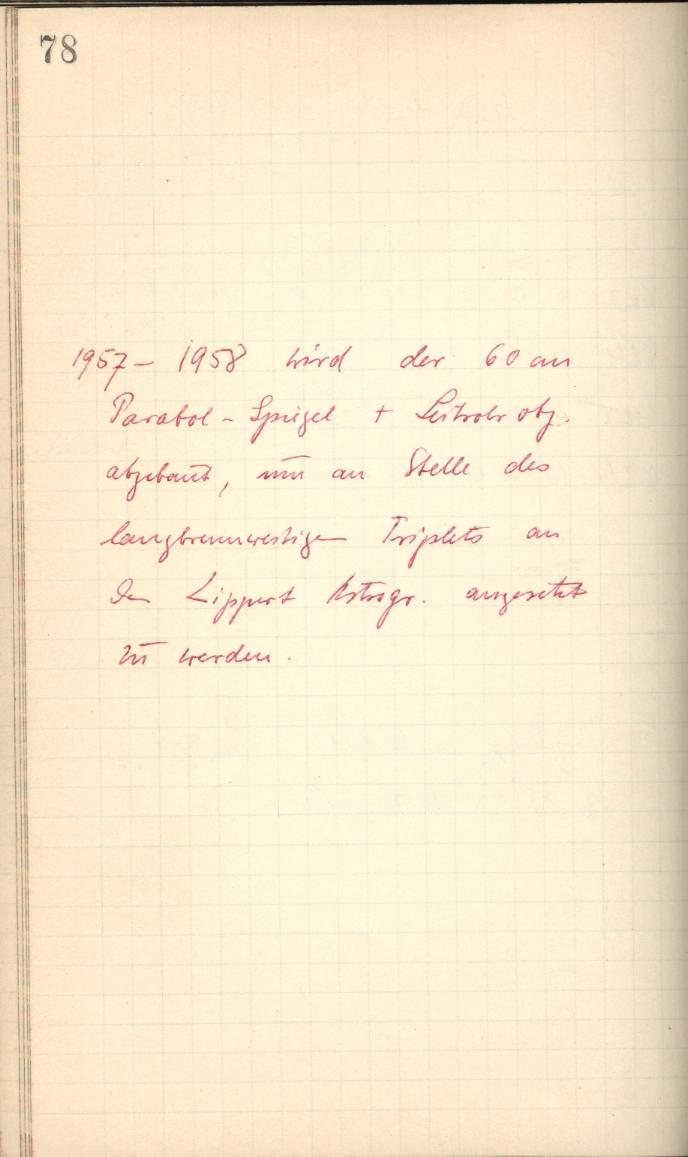 78
1957 – 1958 wird der 60 cm
Parabol-Spiegel + Leitrohrobj.
abgebaut, um an Stelle des
langbrennweitigen Triplets an
den Lippert Astrogr. angesetzt
zu werden.